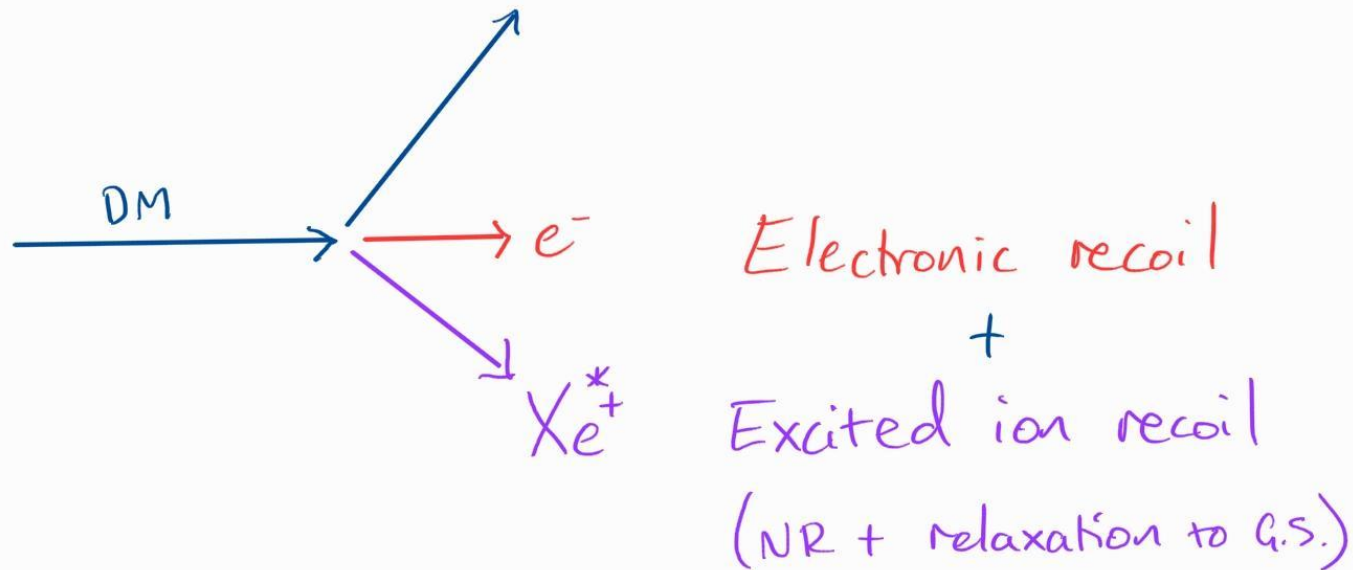 DM
e⁻ Electronic recoil
+
Xe*⁺ Excited ion recoil
(NR + relaxation to G.S.)